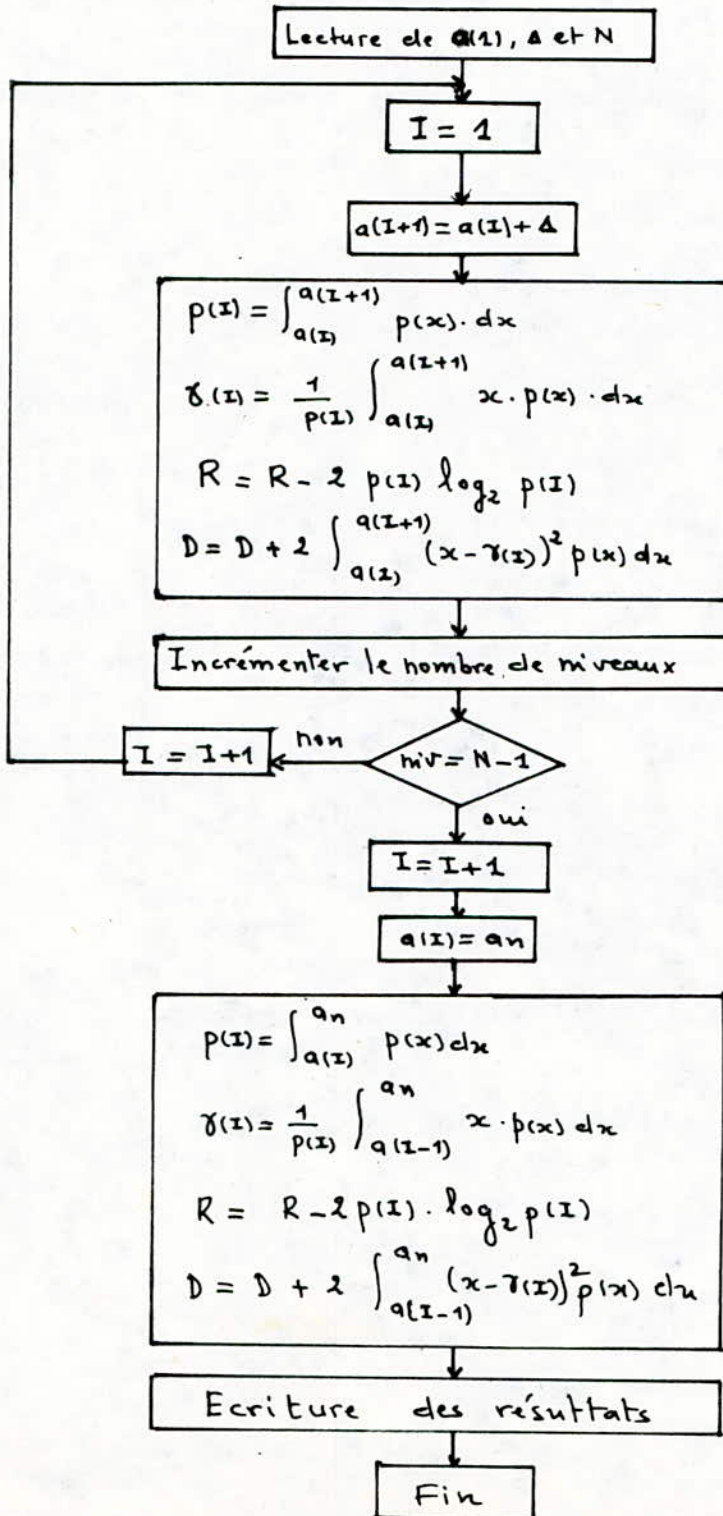 Lecture de a(1), Δ et N
I = 1
a(I+1) = a(I) + Δ
p(I) = ∫_{a(I)}^{a(I+1)} p(x) . dx
γ.(I) = 1/p(I) ∫_{a(I)}^{a(I+1)} x . p(x) . dx
R = R - 2 p(I) log₂ p(I)
D = D + 2 ∫_{a(I)}^{a(I+1)} (x - γ(I))² p(x) dx
Incrémenter le nombre de niveaux
I = I+1
non
niv = N-1
oui
I = I+1
a(I) = an
p(I) = ∫_{a(I)}^{an} p(x) dx
γ(I) = 1/p(I) ∫_{a(I-1)}^{an} x . p(x) dx
R = R - 2 p(I) . log₂ p(I)
D = D + 2 ∫_{a(I-1)}^{an} (x - γ(I))² p(x) dx
Ecriture des résultats
Fin